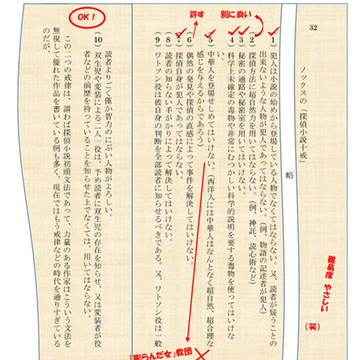 32
ノックスの「探偵小説十戒」
略
(1) 犯人は小説の始めから登場している人物でなくてはならない。又、読者が疑うことの
出来ないような人物が犯人であってはならない。(例、物語の記述者が犯人)
(2) 探偵方法に超自然力を用いてはならない。(例、神託、読心術など)
(3) 秘密の通路や秘密室を用いてはいけない。
(4) 科学上未確定の毒物や非常にむつかしい科学的説明を要する毒物を使ってはいけな
い。
(5) 中華人を登場せしめてはいけない。(西洋人には中華人はなんとなく超自然、超合理な
感じを与えるからであろう)
(6) 偶然の発見や探偵の直感によって事件を解決してはいけない。
(7) 探偵自身が犯人であってはならない。
(8) 読者の知らない手がかりによって解決してはいけない。
(9) ワトソン役は彼自身の判断を全部読者に知らせるべきである。又、ワトソン役は一般
読者よりごく僅か智力のにぶい人物がよろしい。
(10) 双生児や変装による二人一役は、予め読者に双生児の存在を知らせ、又は変装者が役
者などの前歴を持っていることを知らせた上でなくては、用いてはならない。
この二つの戒律は、謂わば探偵小説初頭文法であって、力量のある作家はこういう文法を
無視して優れた作品を書いている例も多く、現在ではもう戒律などの時代を通りすぎている
のだが、
OK!
許す
別に良い
難易度 やさしい
(笑)
「膨らんだ女」教団